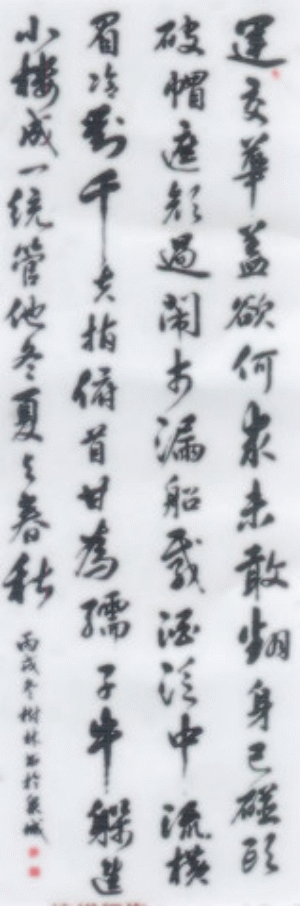 運交華蓋欲何求未敢翻身已碰頭
破帽遮顏過鬧市漏船載酒泛中流橫
眉冷對千夫指俯首甘為孺子牛躲進
小樓成一統管他冬夏与春秋
丙戌冬樹林书於泉城